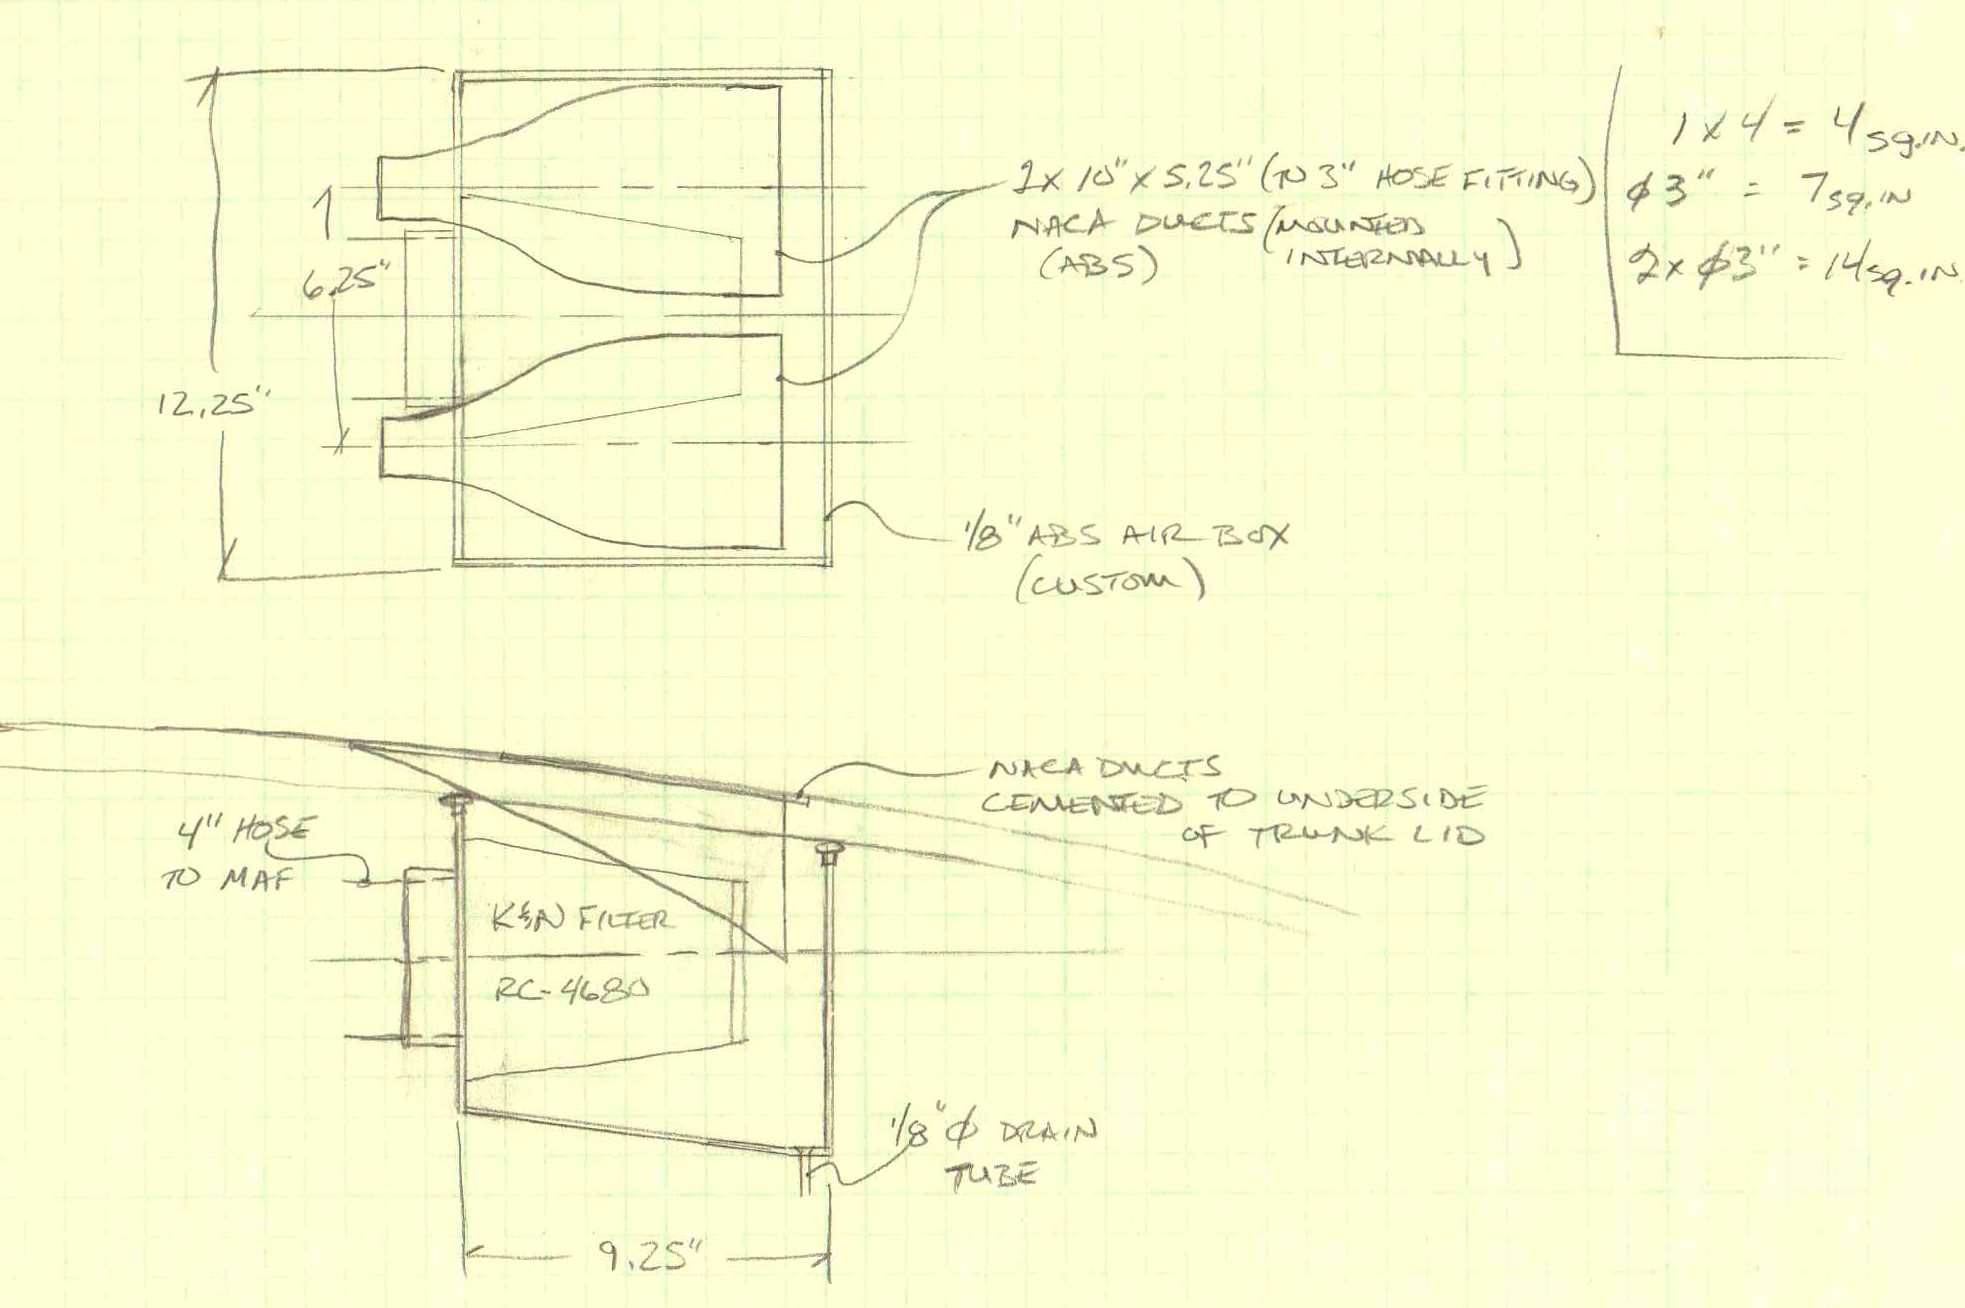 1 x 4 = 4 SQ.IN.
Ø 3" = 7 SQ.IN
2x Ø3" = 14 SQ.IN.
2x 10" x 5.25" (TO 3" HOSE FITTING)
NACA DUCTS (MOUNTED
INTERNALLY)
(ABS)
6.25"
12.25"
1/8" ABS AIR BOX
(CUSTOM)
NACA DUCTS
CEMENTED TO UNDERSIDE
OF TRUNK LID
4" HOSE
TO MAF
K&N FILTER
RC-4680
1/8" Ø DRAIN
TUBE
9.25"